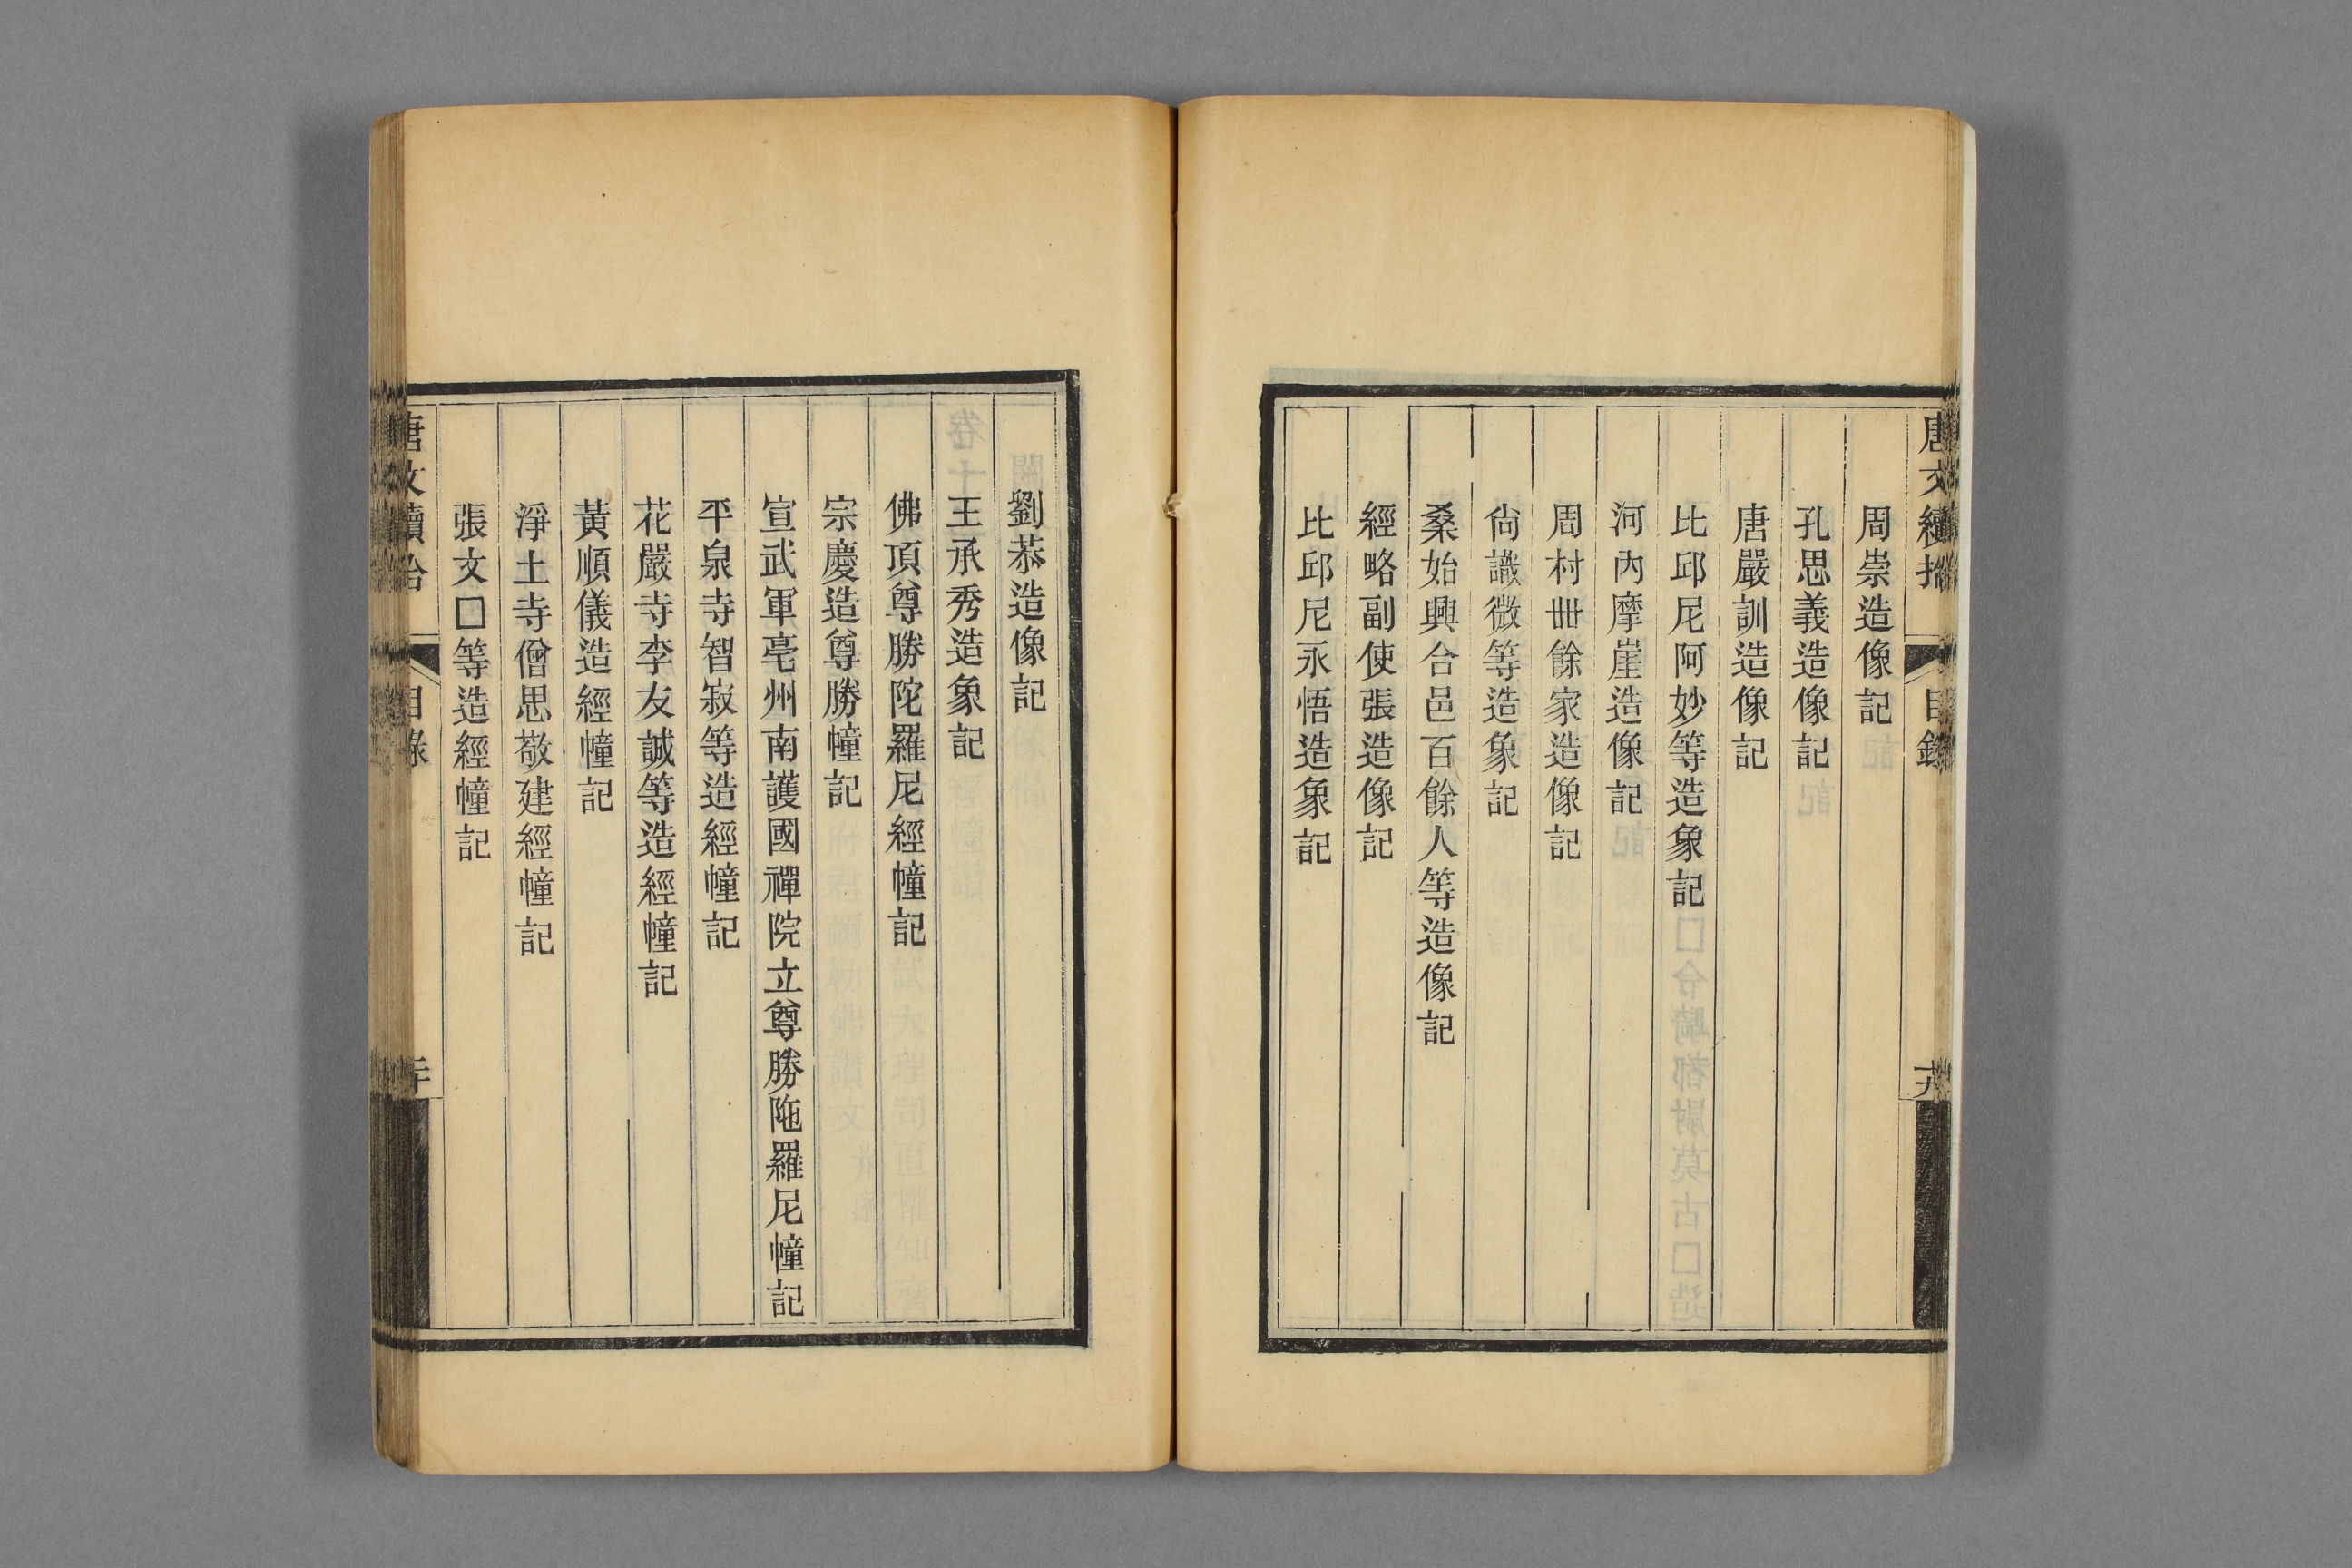 唐文續拾
目錄
十九
周崇造像記
孔思義造像記
唐嚴訓造像記
比邱尼阿妙等造象記
河內摩崖造像記
周村卌餘家造像記
尙識微等造象記
桑始興合邑百餘人等造像記
經略副使張造像記
比邱尼永悟造象記
劉恭造像記
王承秀造象記
佛頂尊勝陀羅尼經幢記
宗慶造尊勝幢記
宣武軍亳州南護國禪院立尊勝陁羅尼幢記
平泉寺智寂等造經幢記
花嚴寺李友誠等造經幢記
黃順儀造經幢記
淨土寺僧思敬建經幢記
張文□等造經幢記
唐文續拾
目錄